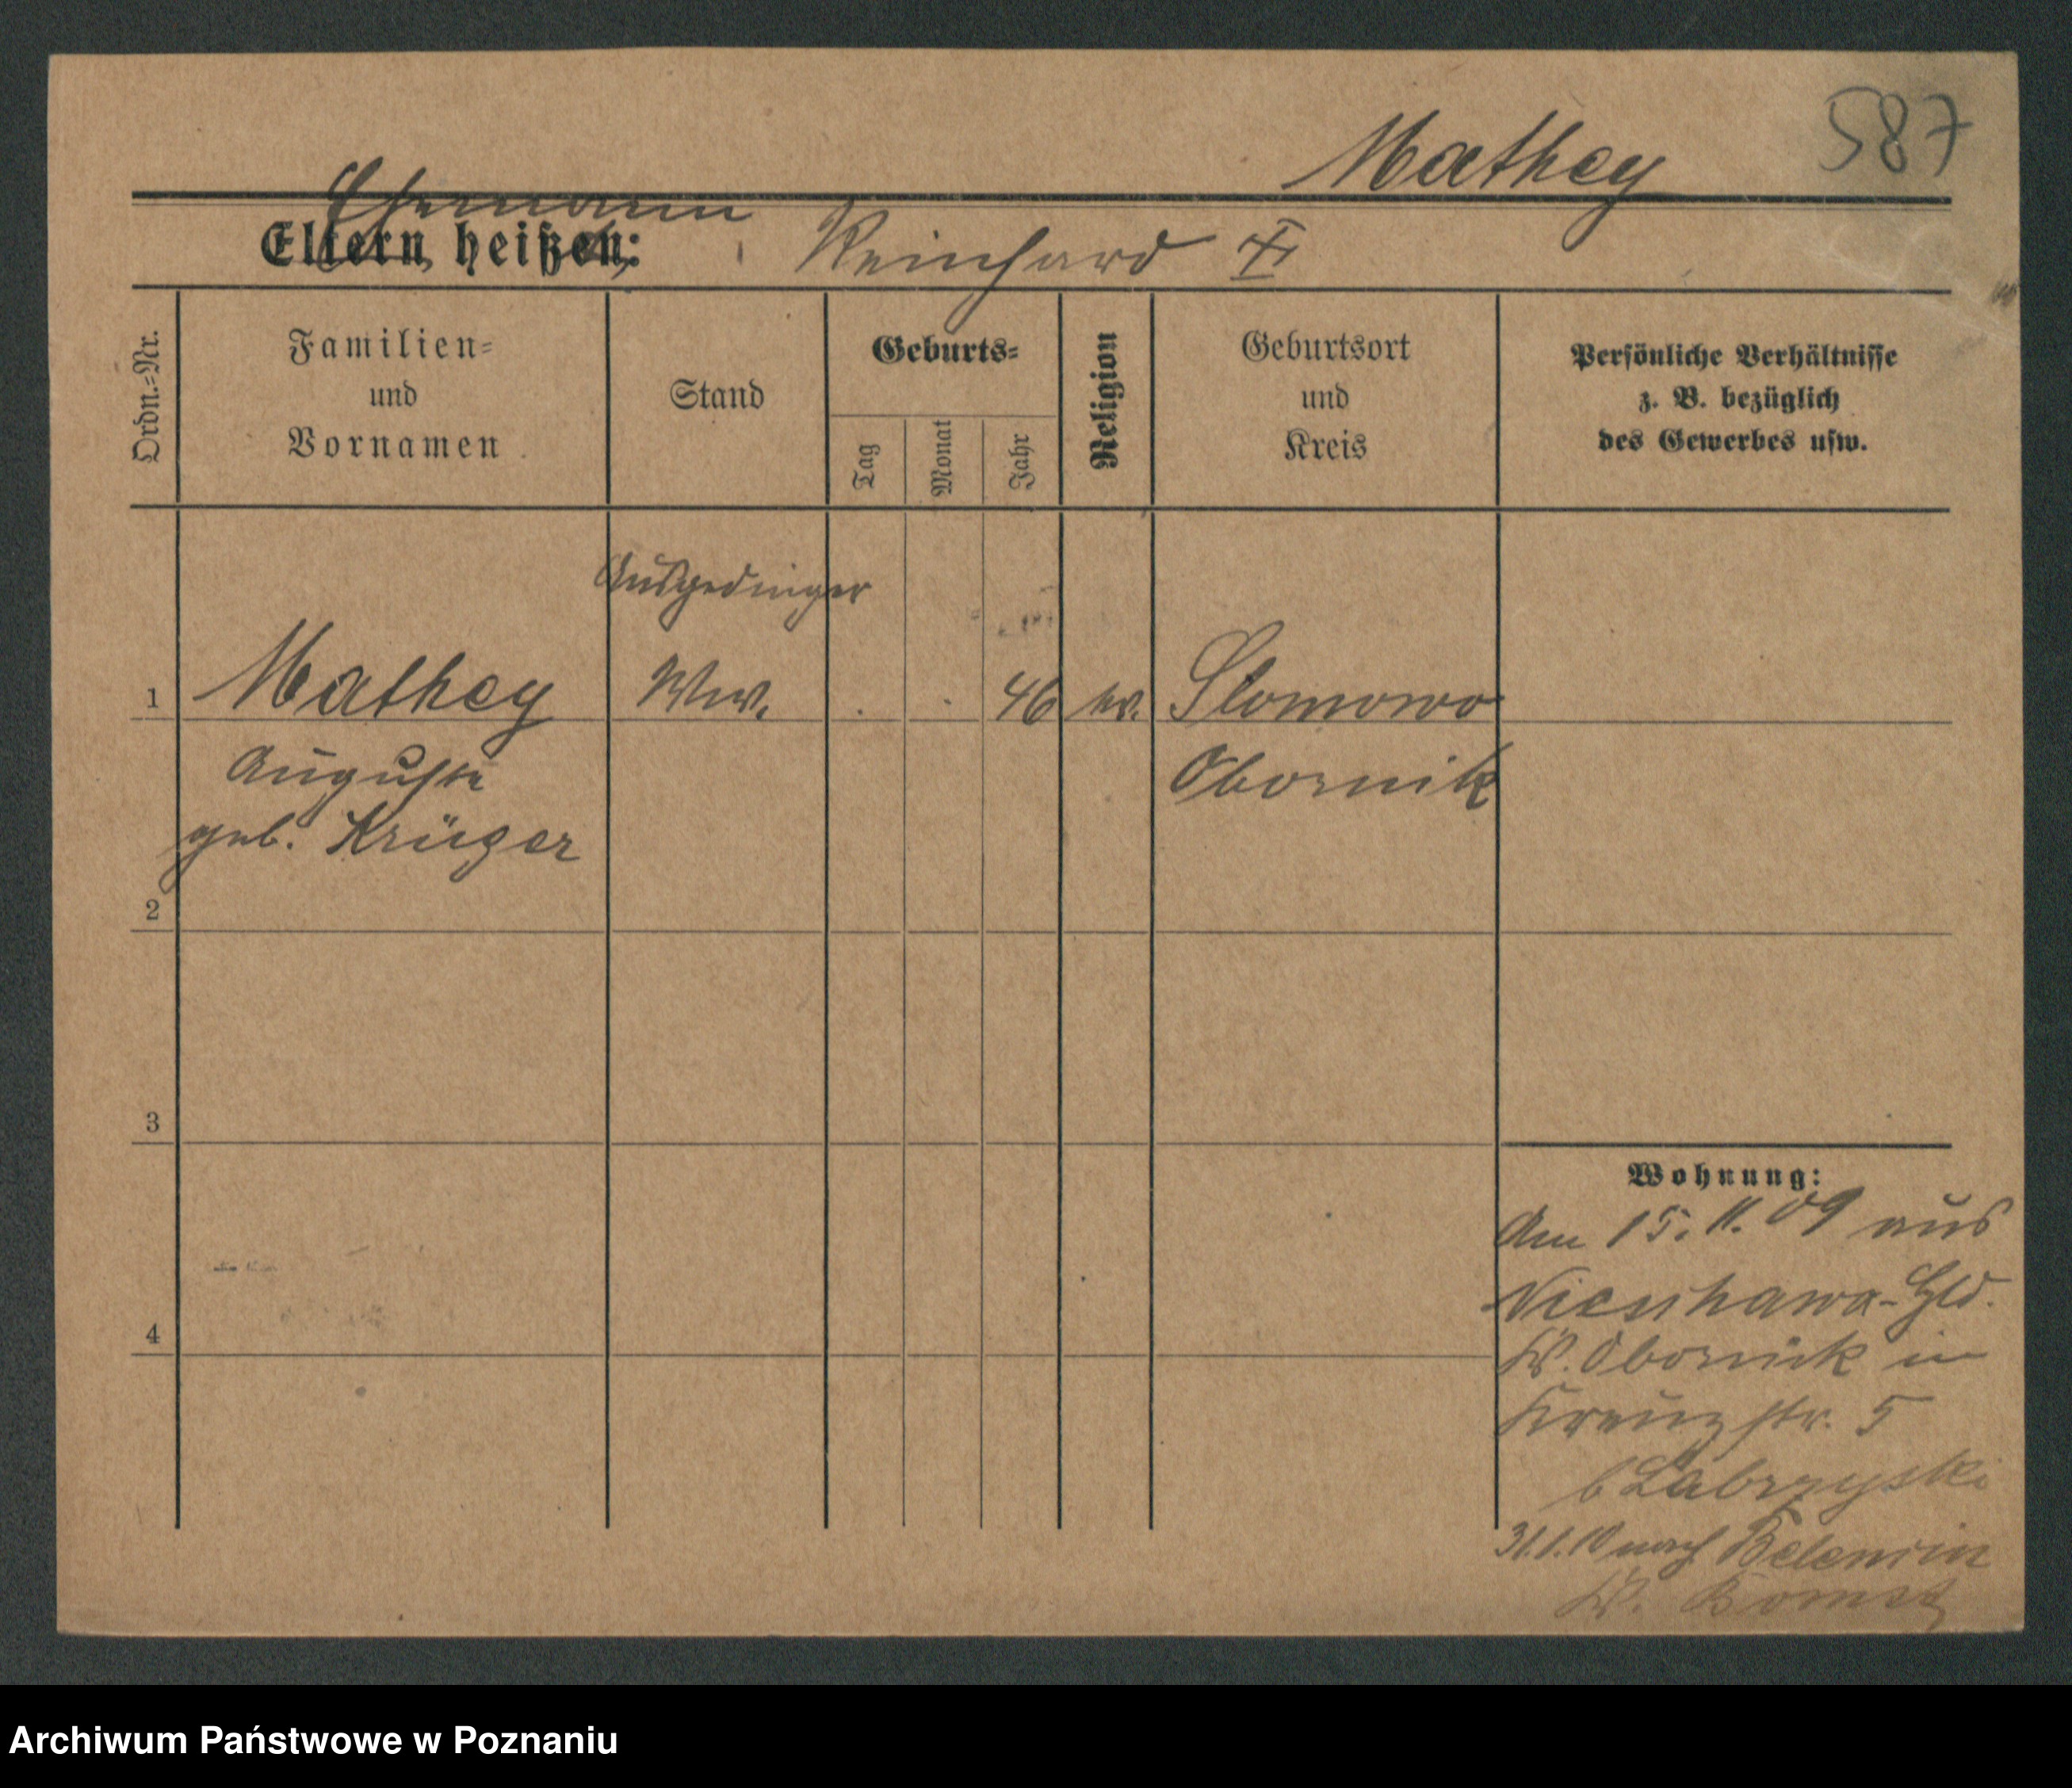 587
Mathey
Ehemann
Eltern heißen: Reinhard
Ordn.=Nr.
Familien=
und
Vornamen
Stand
Geburts=
Tag
Monat
Jahr
Religion
Geburtsort
und
Kreis
Persönliche Verhältnisse
z. B. bezüglich
des Gewerbes usw.
Ausgedinger
1 Mathey Ww. 46 ev. Slomowo
Auguste Obornik
geb. Krüger
2
3
4
Wohnung:
Am 15. 11. 09 aus
Kr. Obornik in
Kreuzstr. 5
b Labrzyski
31.1.10 nach
Kr. Bomst
Archiwum Państwowe w Poznaniu